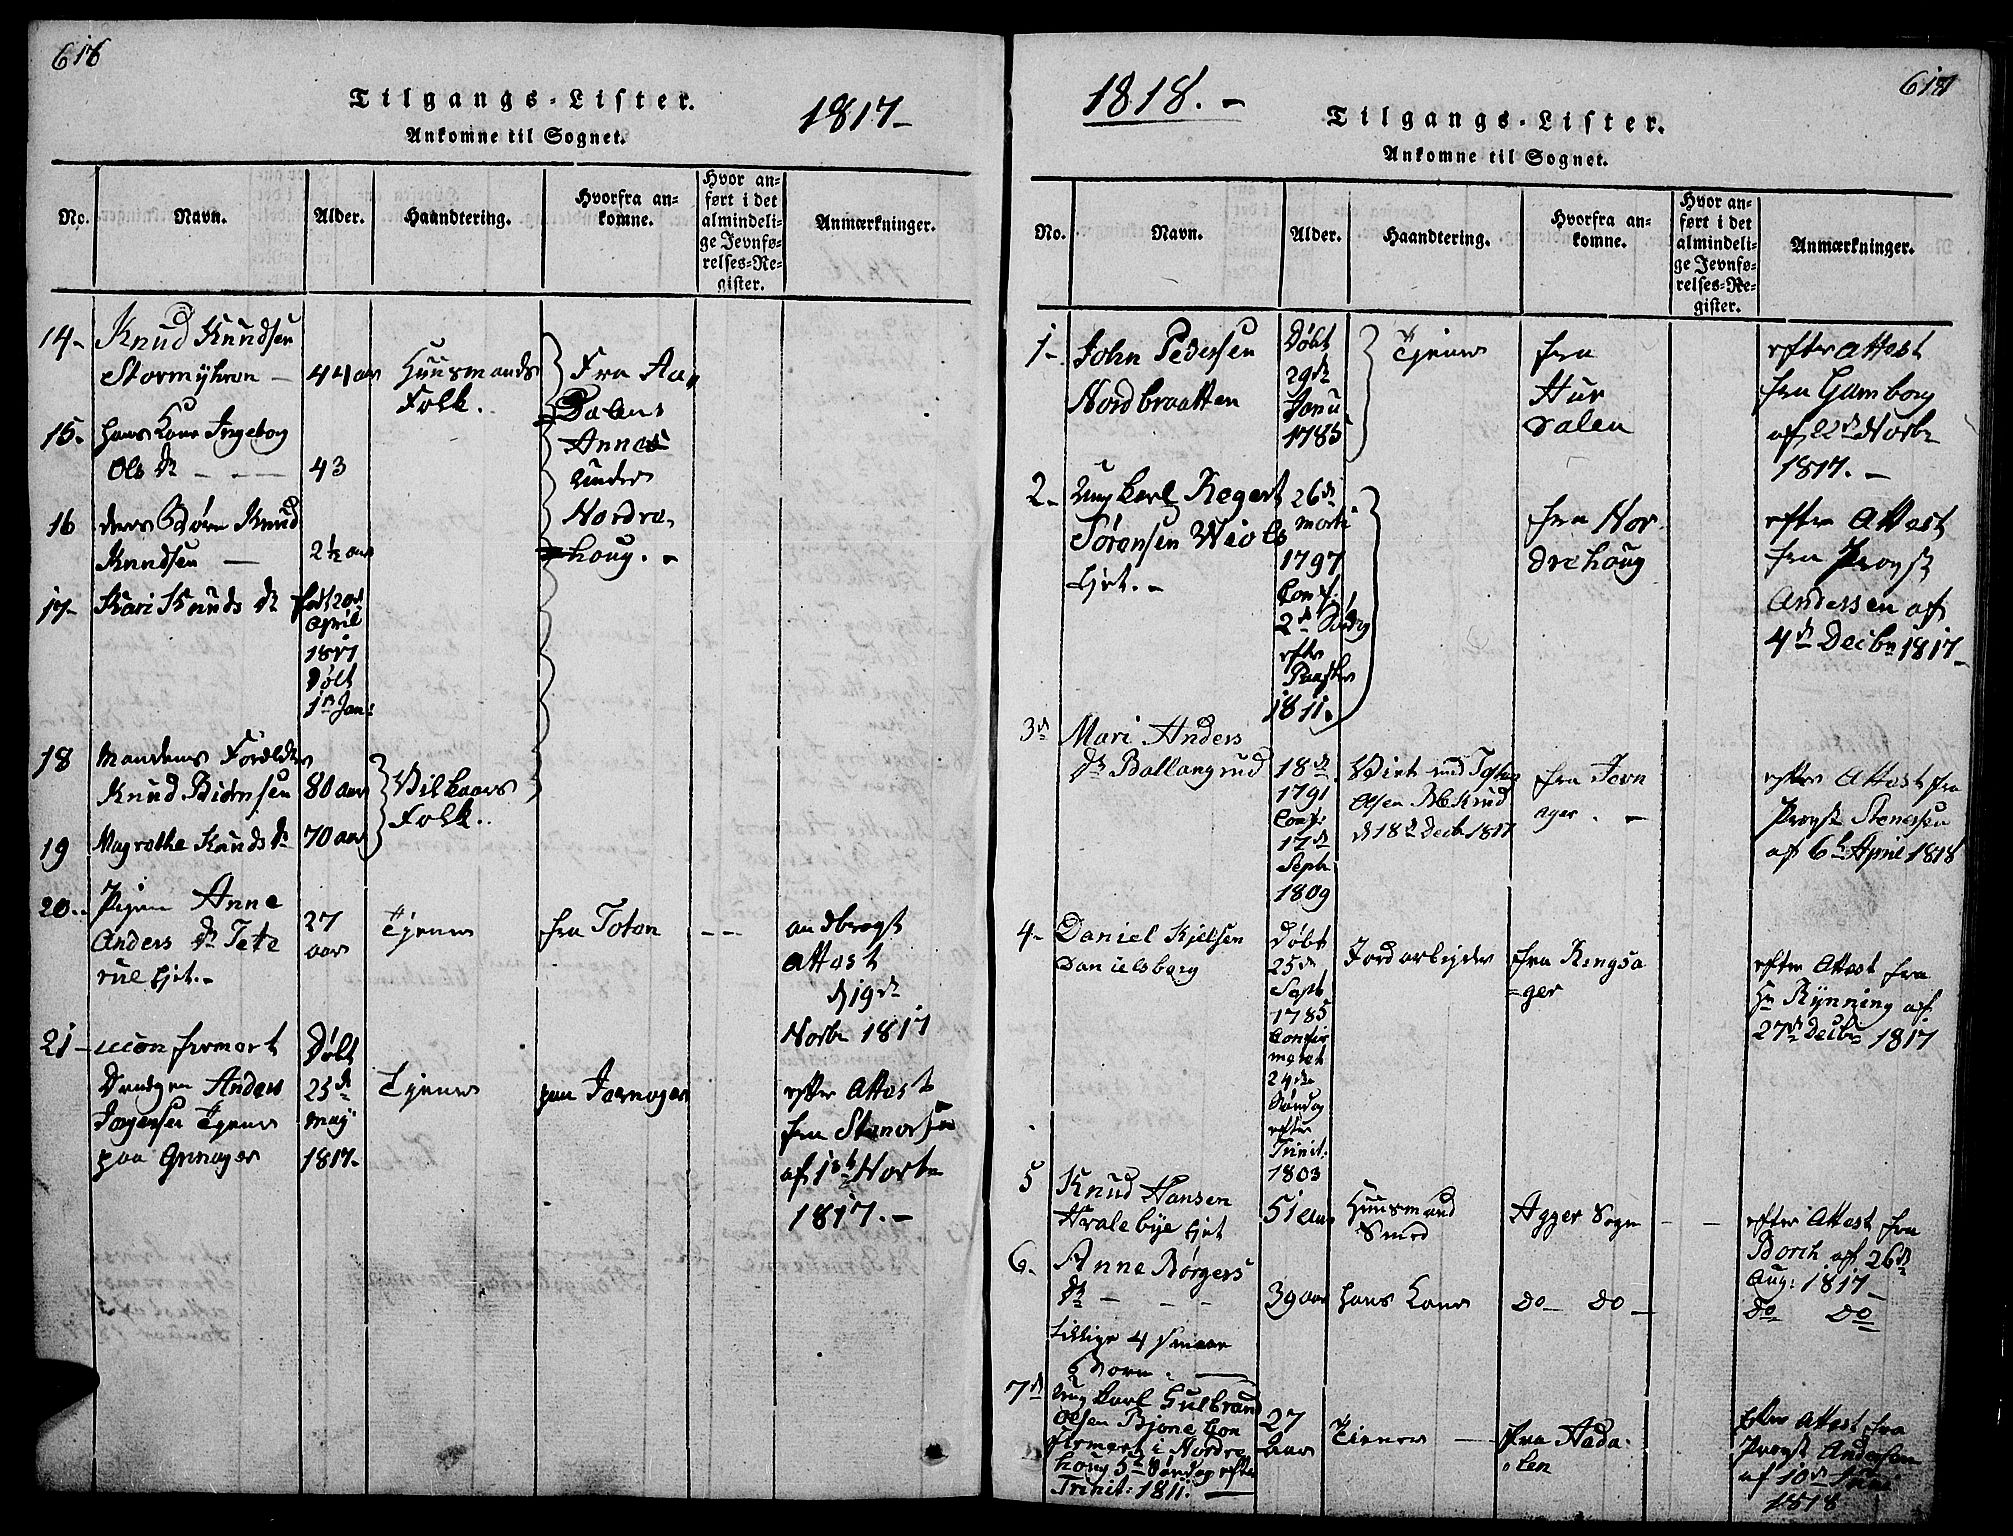 616
Tilgangs-Lister.
1817-
Ankomne til Sognet.
No.
Navn.
Alder.
Haandtering.
Hvorfra an-
komne.
Hvor an-
ført i det
almindeli-
ge Jevnfø-
relses-Re-
gister.
Anmærkninger.
14-
Knud Knudsen
Stormyhren -
44 aar
Huusmands
Folk.
Fra Aa-
Dalens
Annex
under
Nordre-
houg. -
15.
hans Kone Ingeborg
Ols Dr - - -
43
16
deres Børn Knud
Knudsen -
2½ aar
17-
Kari Knuds Dr
født 2den
April
1817
Døbt
18
Mandens Forældre
Knud Biørnsen
80 aar
Vilkaars
Folk.
19
Magrethe Knuds Dr
70 aar
20.
Pigen Anne
Anders Dr Tete
rul Ejet.-
27
aar
Tjener
fra Toten
- -
Attest
d 19de
Novbr 1817
21-
Drengen Anders
Jorgensen Tjener
paa Grinager
Døbt
25de
May
1817.
Tjener
paa Jevnager
efter Attest
fra Stenersen
Novbr
1817. -
1818. -
617
Tilgangs-Lister.
Ankomne til Sognet.
No.
Navn.
Alder.
Haandtering.
Hvorfra an-
komne.
Hvor an-
ført i det
almindeli-
ge Jevnfø-
relses-Re-
gister.
Anmærkninger.
1-
John Pedersen
Nordbraatten
Døbt
29de
Janu
1785
Tjener
fra
Hur
dalen
efter Attest
fra Hamborg
af 22de Novbr
1817. -
2-
Ung karl Regert
Sørensen Wiols
Ejet. -
26de
Marti
1797
Conf.
2den Søndag
efter
Paaske
1811.
fra Nor-
drehoug
efter Attest
fra Provst
Anderssen af
4de Decbr 1817-
3de
Mari Anders
Dr Ballangrud
18de
1791
Conf:
17de
Septbr
1809
Olsen
d 18de Decbr 1817
fra Jevn
ager. -
efter Attest fra
Provst Stenersen
af 6te April 1818
4-
Daniel Kjelsen
Danielsborg
Døbt
25de
Septb
1785
Confir
meret
24de
Søndag
efter
Trinit.
1803
Jordarbejder
fra Ringsa
-ger
efter Attest fra
Hr Rynning af
27de Decbr 1817
5
Knud Hansen
Hvalebye Ejet
51 aar
Huusmand
Smed
Agger Sogn
- -
efter Attest fra
Borch af 26de
Aug: 1817-
6.
Anne Børgers
Dr - - -
39 aar
hans Kone
Do - Do -
Do Do
tillige 4 smaae
Børn. -
7de
Ung karl Gulbrand
Olsen Bjone Con
firmert i Nordre
houg 5te Søndag efter
Trinit: 1811. -
27
Aar
Tiener -
fra Aada-
len
Efter Attest fra
Provst Anderssen
af 10de
1818